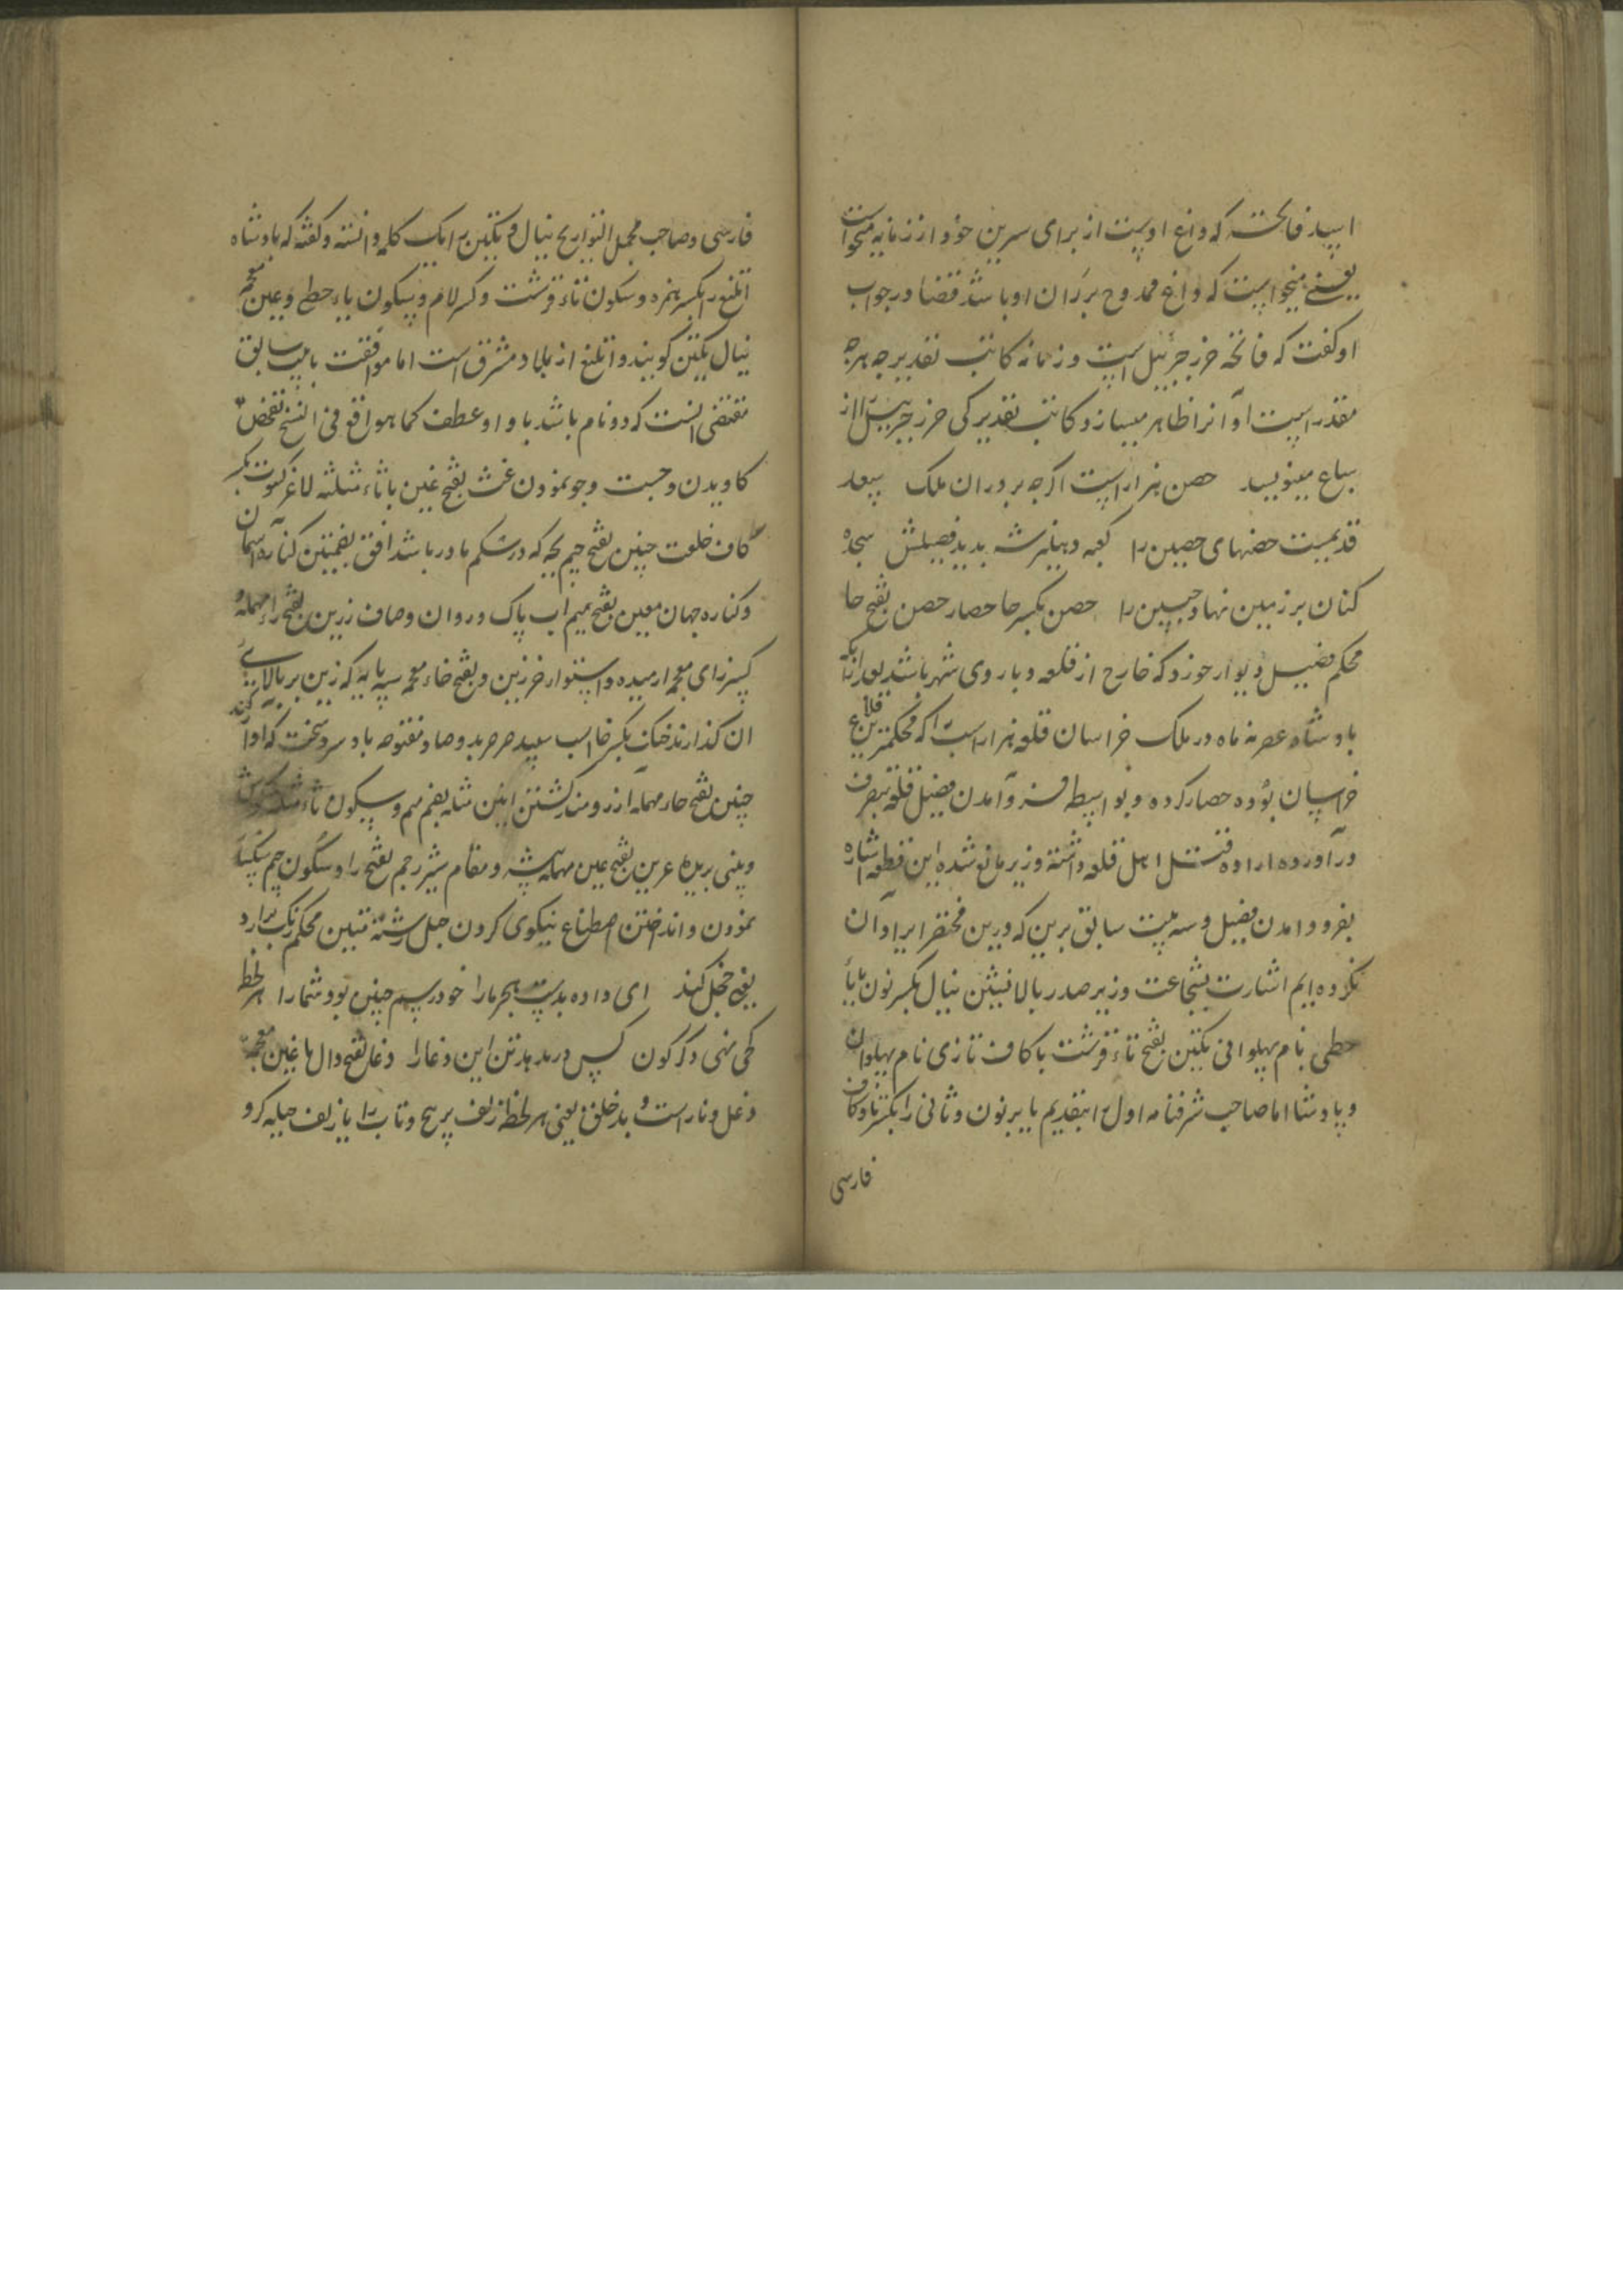 اسپید فاتحه که داغ اوست از برای سرین خود از زمانه میخواست
یعنے میخواست که داغ ممدوح بر ران او باشد قضا در جواب
او گفت که فاتحه حرز جبرئیل است و زمانه کاتب تقدیر چه هرچه
مقدر است او آنرا ظاهر میسازد و کاتب تقدیر کی حرز جبرئیل را از
سباع مینویسد حصن هزار است اگرچه بر در ان ملک
قدیمست حصنهای حصین را کعبه دهلیز شه بدید فصیلش سجده
کنان بر زمین نهاد جبین را حصن بکسر حا حصار حصن بفتح حا
محکم فصیل دیوار خورد که خارج از قلعه و باروی شهر باشد
بادشاه عرصه ماه در ملک خراسان قلعه هزار است را که محکمترین قلاع
خراسان بوده حصار کرده و بواسطه فرو آمدن فصیل قلعه بتصرف
در آورده اراده قتل اهل قلعه داشته وزیر مانع شده این قطعه اشاره
بفرود امدن فصیل و سه بیت سابق برین که درین مختصر ایراد آن
نکرده ایم اشارت بشجاعت وزیر صدر بالا نشین نیال بکسر نون با یاء
حطی نام پهلوانی تکین بفتح تاء قرشت با کاف تازی نام پهلوان
و پادشا اما صاحب شرفنامه اول را بتقدیم یا بر نون و ثانی را بکسر تا و کاف
فارسی
فارسی و صاحب مجمل التواریخ نیال و تکین را یک کلمه دانسته و گفته که بادشاه
اتلیغ را بکسر همزه و سکون تاء قرشت و کسر لام و سکون یاء حطی و غین معجمه
نیال تکین گویند و اتلیغ از بلاد مشرق است اما موافقت با بیت سابق
مقتضی انست که دو نام باشد با واو عطف کما هو واقع فی النسخ تفحص
کاویدن و جست و جو نمودن غث بفتح غین با ثاء مثلثه لاغر کسوت بکسر
کاف خلعت جنین بفتح جیم بچه که در شکم مادر باشد افق بضمتین کناره آسمان
و کناره جهان معین بفتح میم اب پاک و روان و صاف رزین بفتح راء مهمله و
کسر زای معجمه ارمیده و استوار خرزین و بفتح خاء معجمه سه پایه که زین بر بالای
ان گذارند خنک بکسر خا اسب سپید صرصر بدو صاد مفتوحه باد سرد سخت که او آواز کند
حنین بفتح حاء مهمله ارزومند گشتن انین مثله بضم میم و سکون ثاء مثلثه گوش
و بینی بریدن عرین بفتح عین مهمله بیشه و مقام شیر رجم بفتح را و سکون جیم سنگسار
نمودن و انداختن اصطناع نیکوی کردن حبل رشته متین محکم زنگ برارد
یعنی خجل کند ای داده بدست هجر ما را خود رسم چنین بود شما را هر لحظه
کجی نهی دگرگون کس در ندهد تن این دغا را دغا بفتح دال با غین معجمه
دغل و ناراست و بد خلق یعنی هر لحظه زلف پر پیچ و تاب را یا زلف حیله گرو